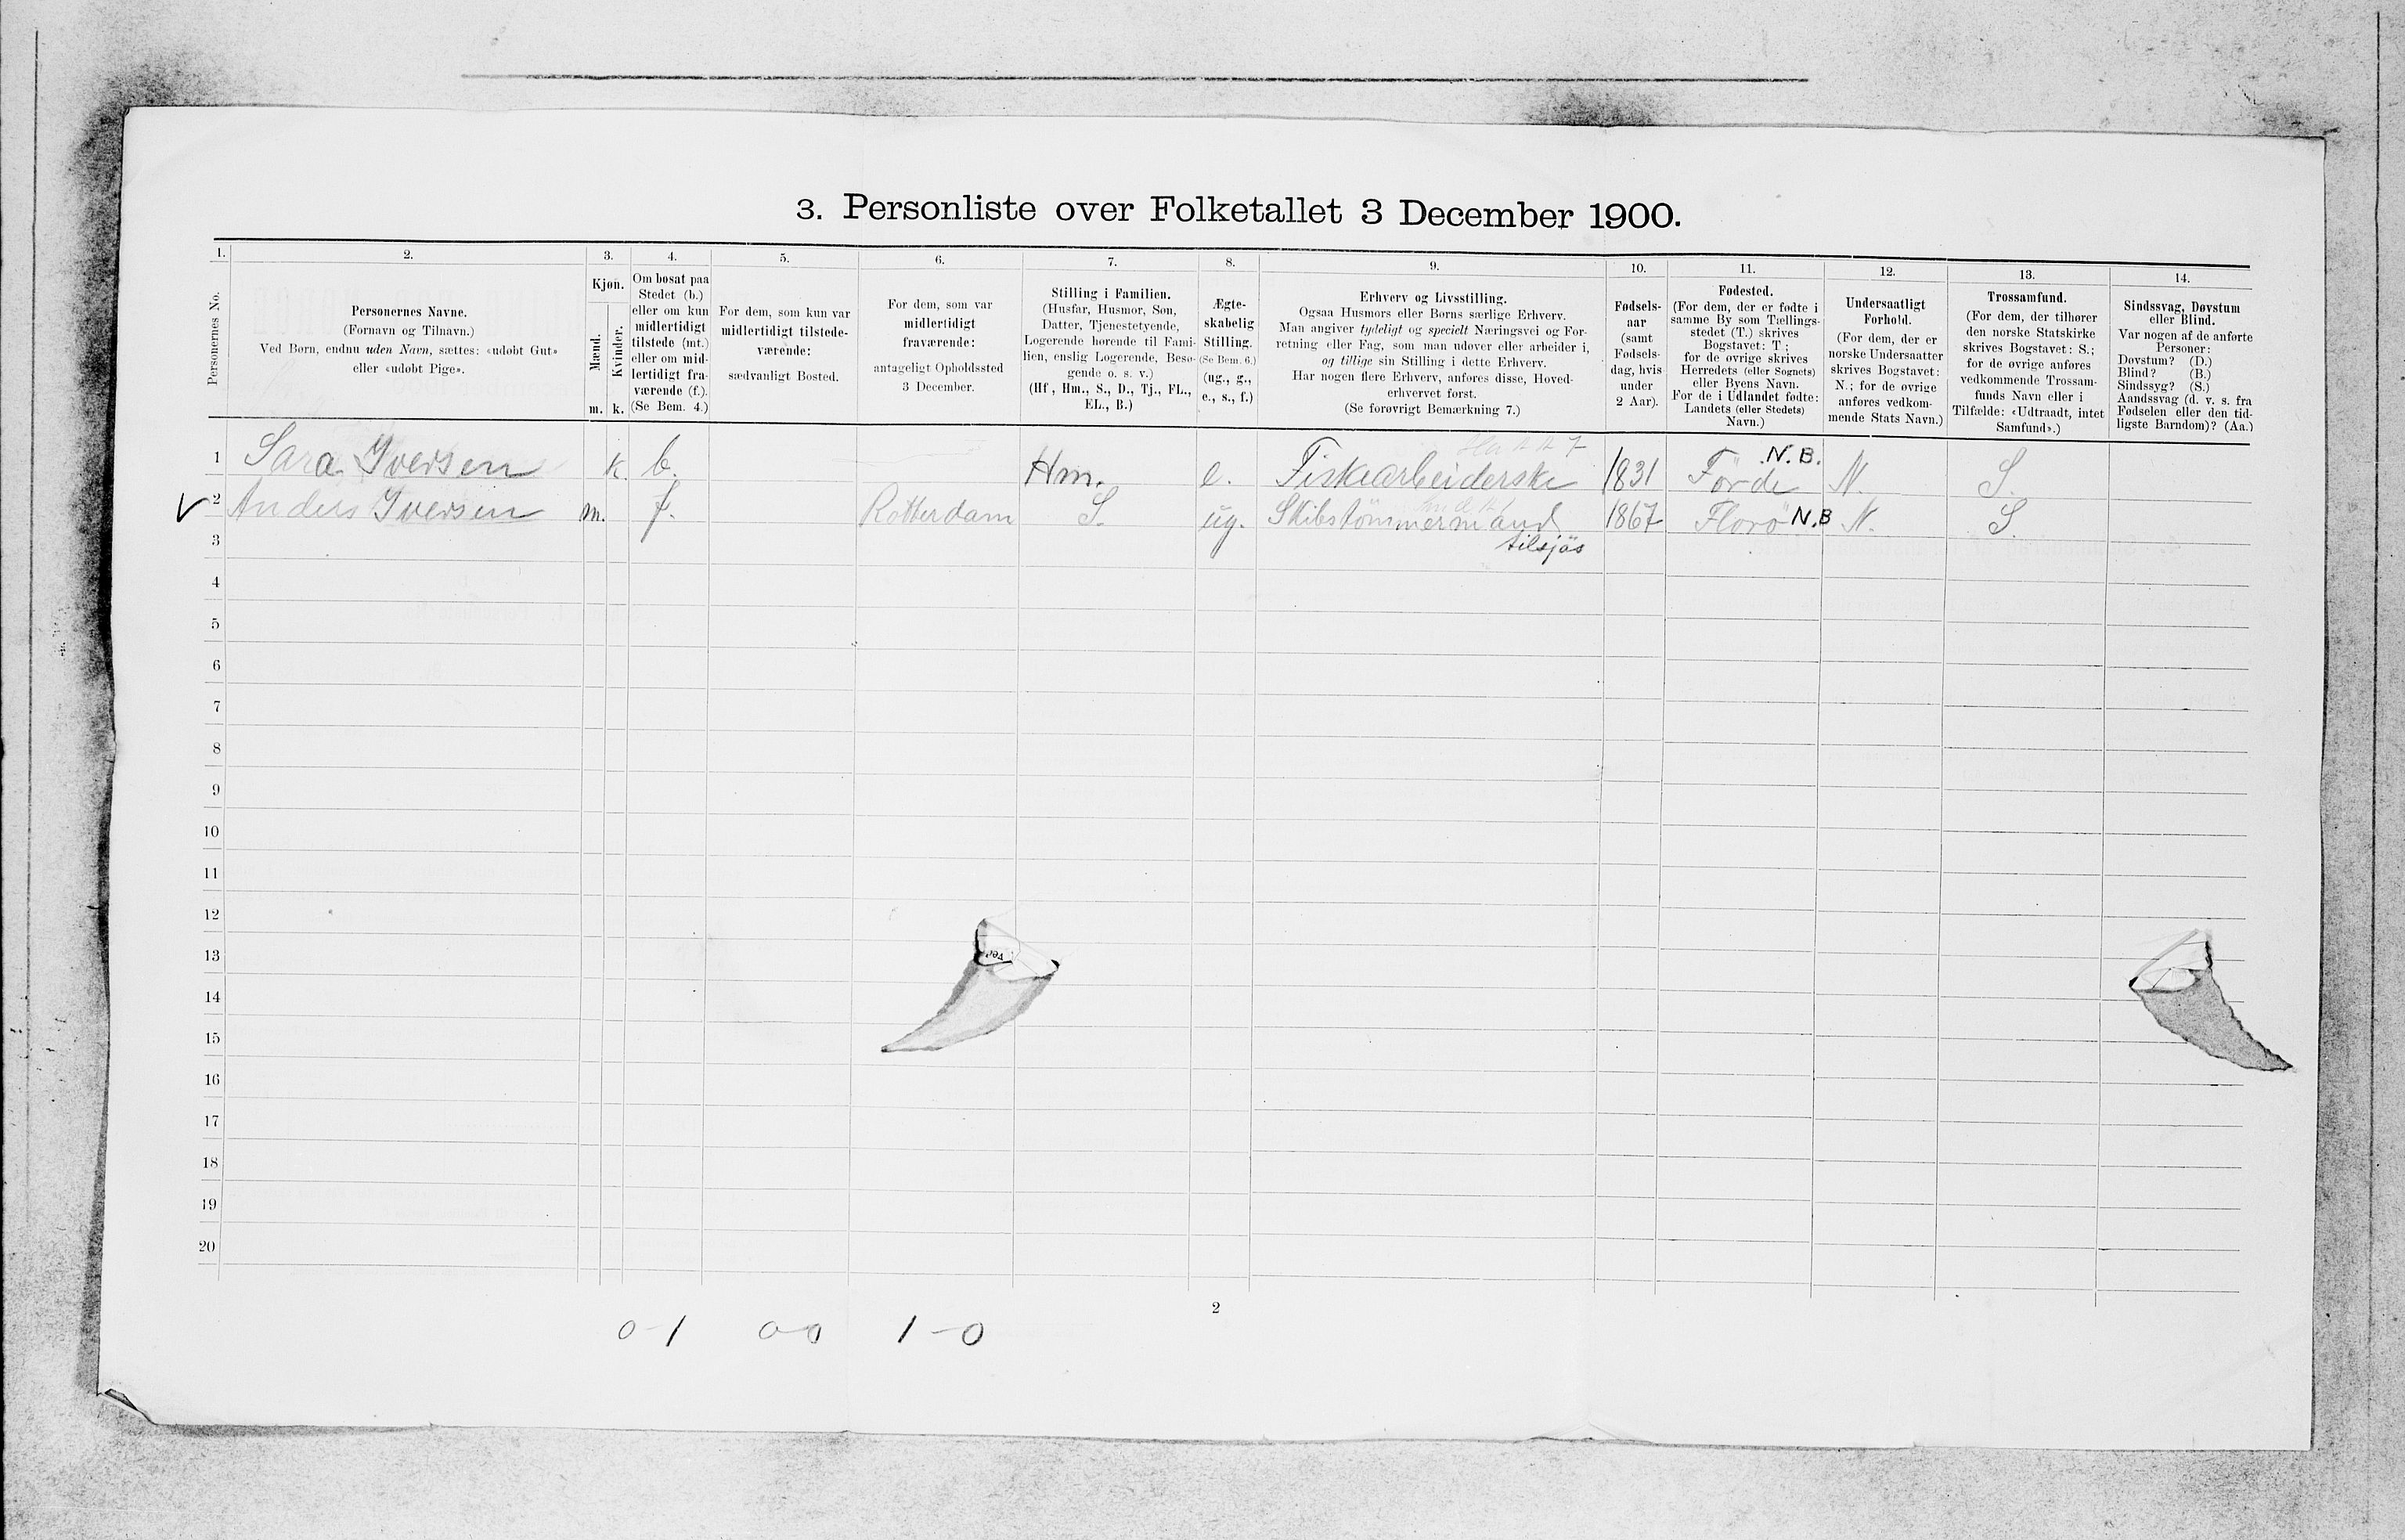 3. Personliste over Folketallet 3 December 1900.
1. 2. 3. 4. 5. 6. 7. 8. 9. 10. 11. 12. 13. 14.
Personernes No.
Personernes Navne.
(Fornavn og Tilnavn.)
Ved Børn, endnu uden Navn, sættes: «udøbt Gut»
eller «udøbt Pige».
Kjøn.
Mænd.
Kvinder.
m. k.
Om bosat paa
Stedet (b.)
eller om kun
midlertidigt
tilstede (mt.)
eller om mid-
lertidigt fra-
værende (f.).
(Se Bem. 4.)
For dem, som kun var
midlertidigt tilstede-
værende:
sædvanligt Bosted.
For dem, som var
midlertidigt
fraværende:
antageligt Opholdssted
3 December.
Stilling i Familien.
(Husfar, Husmor, Søn,
Datter, Tjenestetyende,
Logerende hørende til Fami-
lien, enslig Logerende, Besø-
gende o. s. v.)
(Hf., Hm., S., D., Tj., FL.,
EL., B.)
Ægte-
skabelig
Stilling.
(Se Bem. 6.)
(ug., g.,
e., s., f.)
Erhverv og Livsstilling.
Ogsaa Husmors eller Børns særlige Erhverv.
Man angiver tydeligt og specielt Næringsvei og For-
retning eller Fag, som man udøver eller arbeider i,
og tillige sin Stilling i dette Erhverv.
Har nogen flere Erhverv, anføres disse, Hoved-
erhvervet først.
(Se forøvrigt Bemærkning 7.)
Fødsels-
aar
(samt
Fødsels-
dag, hvis
under
2 Aar).
Fødested.
(For dem, der er fødte i
samme By som Tællings-
stedet (T.) skrives
Bogstavet: T;
for de øvrige skrives
Herredets (eller Sognets)
eller Byens Navn.
For de i Udlandet fødte:
Landets (eller Stedets)
Navn.)
Undersaatligt
Forhold.
(For dem, der er
norske Undersaatter
skrives Bogstavet:
N.; for de øvrige
anføres vedkom-
mende Stats Navn.)
Trossamfund.
(For dem, der tilhører
den norske Statskirke
skrives Bogstavet: S.;
for de øvrige anføres
vedkommende Trossam-
funds Navn eller i
Tilfælde: «Udtraadt, intet
Samfund».)
Sindssvag, Døvstum
eller Blind.
Var nogen af de anførte
Personer:
Døvstum? (D.)
Blind? (B.)
Sindssyg? (S.)
Aandssvag (d. v. s. fra
Fødselen eller den tid-
ligste Barndom)? (Aa.)
1 Sara Iversen k. b. Hm. e. Fiskearbeiderske 1831 Förde N.B. N. S.
2 Anders Iversen m. f. Rotterdam S. ug. Skibstömmermand 1867 Florö N.B N. S.
tilsjös
3
4
5
6
7
8
9
10
11
12
13
14
15
16
17
18
19
20
2
0-1 0-0 1-0